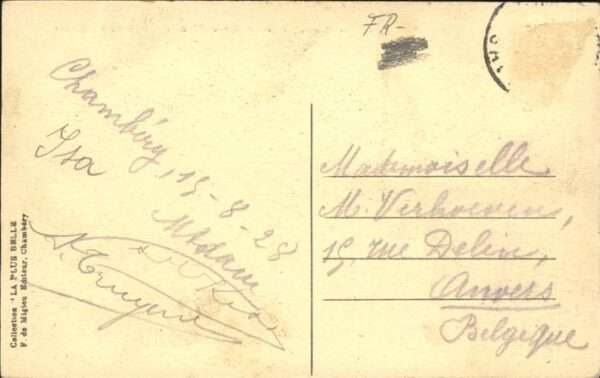 FR-
Chambéry, 15-8-28
Isa
Madame
Mademoiselle
M. Verhoeven,
15, rue Delin,
Anvers
Belgique
Collection "LA PLUS BELLE"
F. de Migieu Editeur, Chambéry